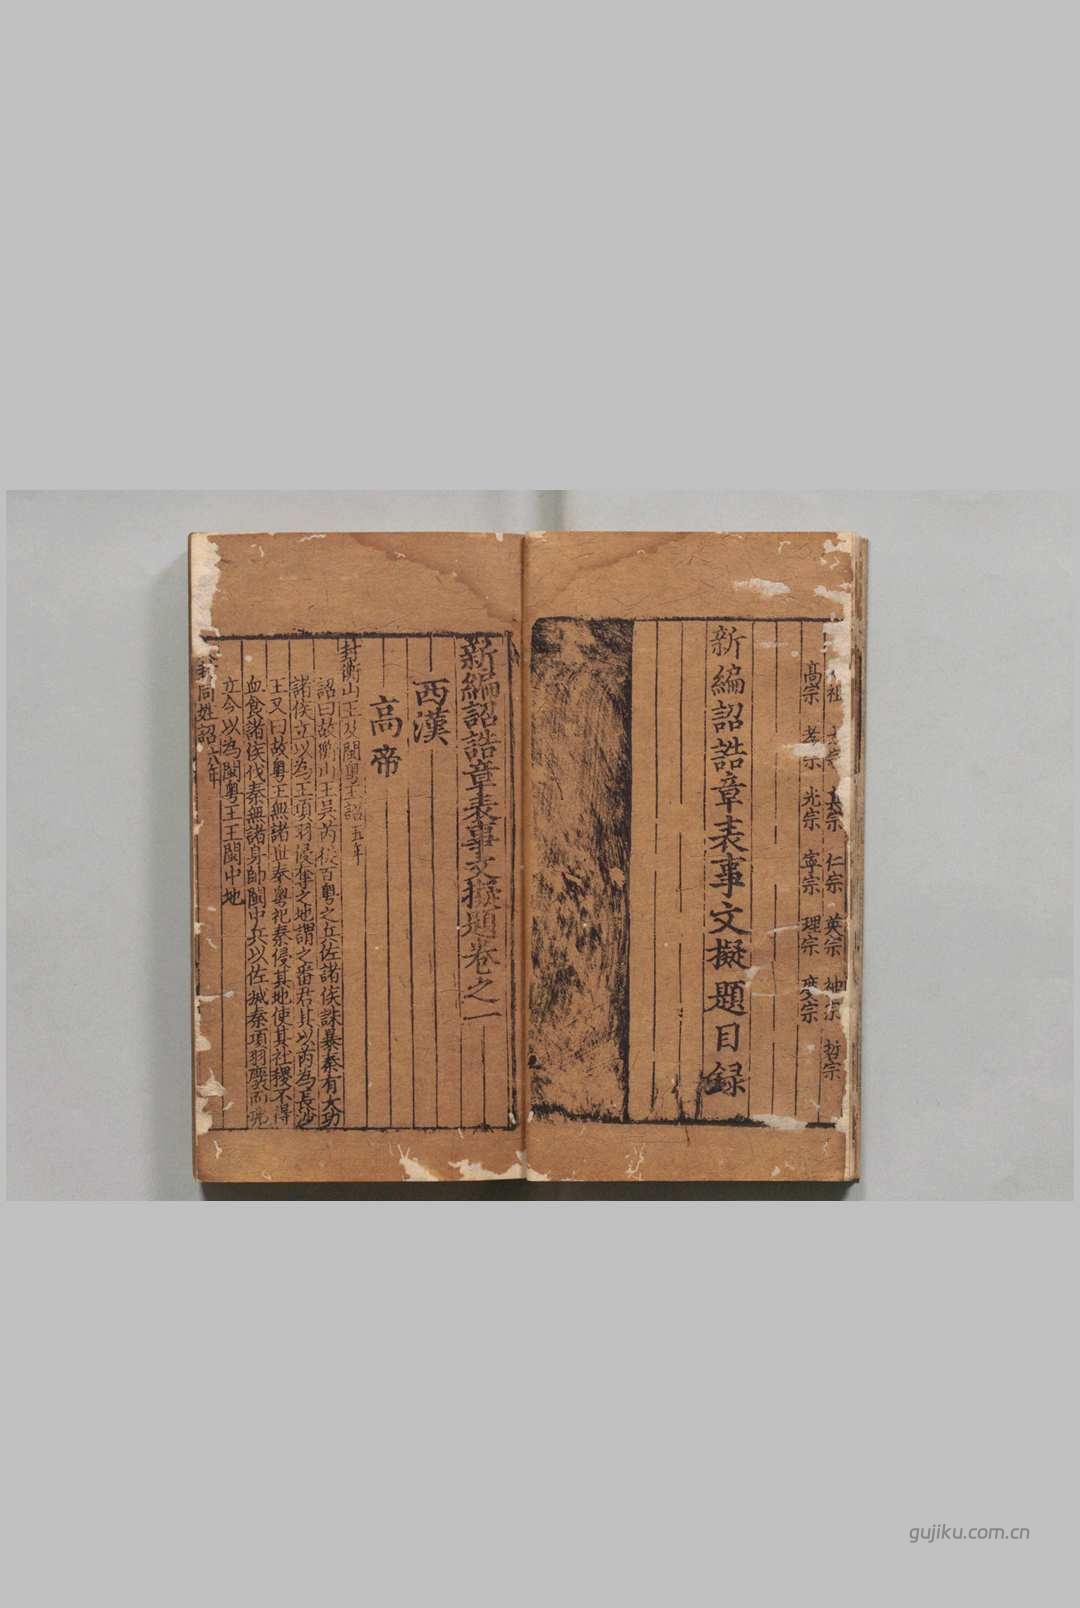 祖 太宗 真宗 仁宗 英宗 神宗 哲宗
高宗 孝宗 光宗 寧宗 理宗 度宗
新編詔誥章表事文擬題目録
新編詔誥章表事文擬題卷之一
西漢
高帝
封衡山王及閩粵王詔五年
詔曰故衡山王吳芮從百粵之兵佐諸侯誅暴秦有大功
諸侯立以為王項羽侵奪之地謂之番君其以芮為長沙
王又曰故粵王無諸世奉粵祀秦侵其地使其社稷不得
血食諸侯伐秦無諸身帥閩中兵以佐滅秦項羽廢而弗
立今以為閩粵王王閩中地
封同姓詔六年
gujiku.com.cn